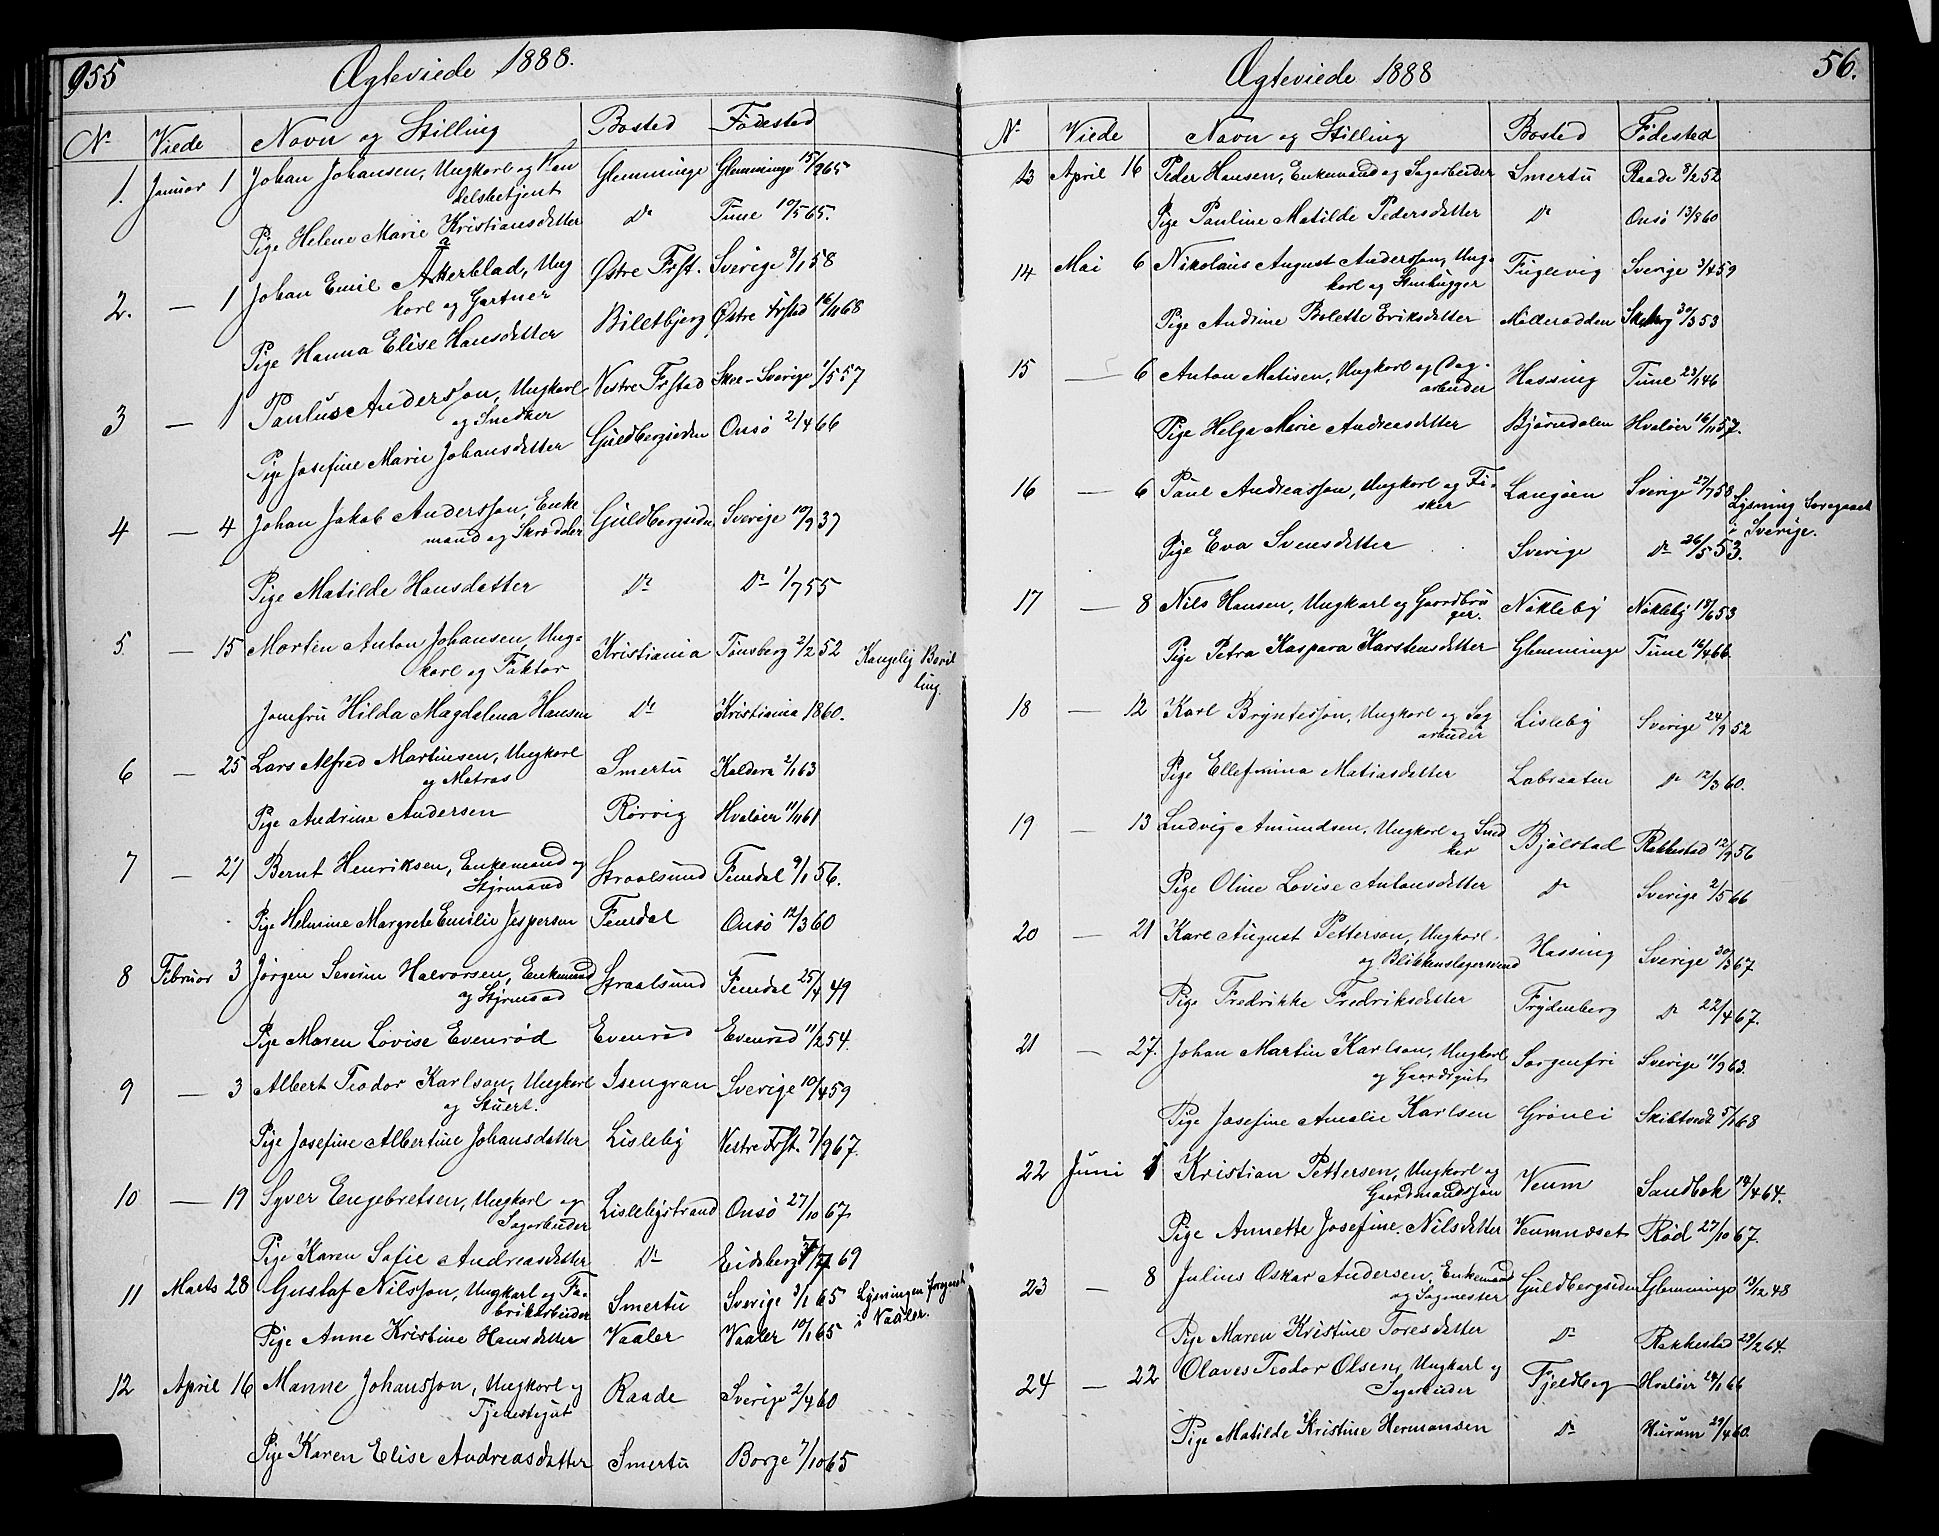 955 Ægteviede 1888.
No Viede Navn og Stilling Bosted Fødested
1. Januar 1 Johan Johansen, Ungkarl og Han Glemminge Glemminge 15/9 65
delsbetjent
Pige Helene Marie Kristiansdatter Do Tune 10/5 65.
2. — 1 Johan Emil Akerblad, Ung Østre Frst. Sverige 8/1 58
karl og Gartner
Pige Hanna Elise Hansdatter Biletbjerg Østre Frstad 16/11 68
3 — 1 Paulus Andersson, Ungkarl Vestre Frstad Skee-Sverige 1/5 57
og Snedker
Pige Josefine Marie Johansdatter Guldbergsiden Onsø 2/4 66
4 — 4 Johan Jakob Andersson, Enke Guldbergsiden Sverige 10/9 37
mand og Skrædder
Pige Matilde Hansdatter Do Do 1/7 55
5. — 15 Martin Anton Johansen, Ung= Kristiania Tønsberg 2/2 52 Kongelig Bevil
karl og Faktor ling.
Jomfru Hilda Magdalena Hansen Do Kristiania 1860.
6 — 25 Lars Alfred Martinsen, Ungkarl Smertu Kaldera 2/1 63
og Matros
Pige Andrine Andersen Rørvig Hvaløer 11/11 61
7 — 27 Bernt Henriksen, Enkemand og Straalsund Femdal 9/1 56.
Styrmand
Pige Helmine Margrete Emilie Jespersen Femdal Onsø 12/3 60
8 Februar 3 Jørgen Severin Halvorsen, Enkemand Straalsund Femdal 25/4 49
og Styrmand
Pige Maren Lovise Evenrød Evenrød Evenrød 11/2 54.
9 — 3 Albert Teodor Karlson, Ungkarl Isengran Sverige 10/4 59
og Stuert.
Pige Josefine Albertine Johansdatter Lisleby Vestre Frst. 7/9 67.
10 — 19 Syver Engebretsen, Ungkarl og Lislebystrand Onsø 27/10 67
Sagarbeider
Pige Karen Sofie Andreasdatter Do Eidsberg 69
11 Marts 28 Gustaf Nilsson, Ungkarl og Fa= Smertu Sverige 3/1 65 Lysningen foregaaet
brikarbeider i Vaaler.
Pige Anne Kristine Hansdatter Vaaler Vaaler 10/1 65
12 April 16 Manne Johansson, Ungkarl og Raade Sverige 2/4 60
Tjenestegut
Pige Karen Elise Andreasdatter Smertu Borge 7/10 65
Ægteviede 1888 56.
No Viede Navn og Stilling Bosted Fødested
13 April 16 Peder Hansen, Enkemand og Sagarbeider Smertu Raade 8/2 52
Pige Pauline Matilde Pedersdatter Do Onsø 13/8 60
14 Mai 6 Nikolaus August Andersson, Ung= Fuglevig Sverige 3/4 59
karl og Stenhugger
Pige Andrine Bolette Eriksdatter Mølleradden 30/3 53
15 — 6 Anton Matisen, Ungkarl og Dag= Hassing Tune 23/1 46
arbeider
Pige Helga Marie Andreasdatter Bjørndalen Hvaløer 16/11 57.
16 — 6 Paul Andreasson, Ungkarl og Fi= Langøen Sverige 27/7 58 Lysning foregaaet
sker i Sverige.
Pige Eva Svensdatter Sverige Do 26/5 53.
17 — 8 Nils Hansen, Ungkarl og Gaardbru Nøkleby Nøkleby 18/6 53
ger.
Pige Petra Kaspara Karstensdatter Glemminge Tune 16/4 66.
18 — 12 Karl Bryntesson, Ungkarl og Sag Lisleby Sverige 24/9 52
arbeider
Pige Ellefmina Matiasdatter Labraaten Do 12/3 60.
19 — 13 Ludvig Amundsen, Ungkarl og Sned Bjølstad Rakkestad 12/9 56
ker
Pige Oline Lovise Antonsdatter Do Sverige 2/5 66
20 — 21 Karl August Petterson, Ungkarl Hassing Sverige 30/3 67
og Blikkenslagersvend
Pige Fredrikke Fredriksdatter Frydenberg Do 22/4 67.
21 — 27. Johan Martin Karlson, Ungkarl Sorgenfri Sverige 11/9 63.
og Gaardsgut
Pige Josefine Amalie Karlsen Grønli Skibtvedt 5/1 68
22 Juni 1 Kristian Pettersen, Ungkarl og Veum Sandbæk 18/4 64.
Gaardmandssøn
Pige Annette Josefine Nilsdatter Veumnæset Rød 27/10 67.
23 — 8 Julius Oskar Andersen, Enkemand Guldbergsiden Glemminge 13/12 48
og Sagmester
Pige Maren Kristine Toresdatter Do Rakkestad 29/2 64.
24 — 22 Olaves Teodor Olsen, Ungkarl og Fjeldberg Hvaløer 14/1 66
Sagarbeider
Pige Matilde Kristine Hermansen Do Hurum 29/4 60.